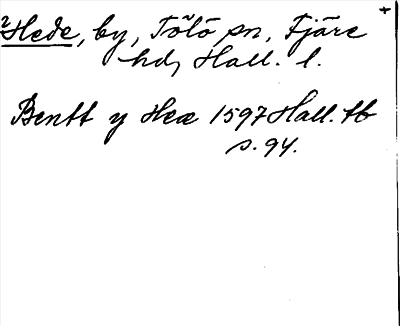 ²Hede, by, Tölö sn, Fjäre
hd, Hall. l.
Bentt y Hea 1597 Hall. tb
s. 94.